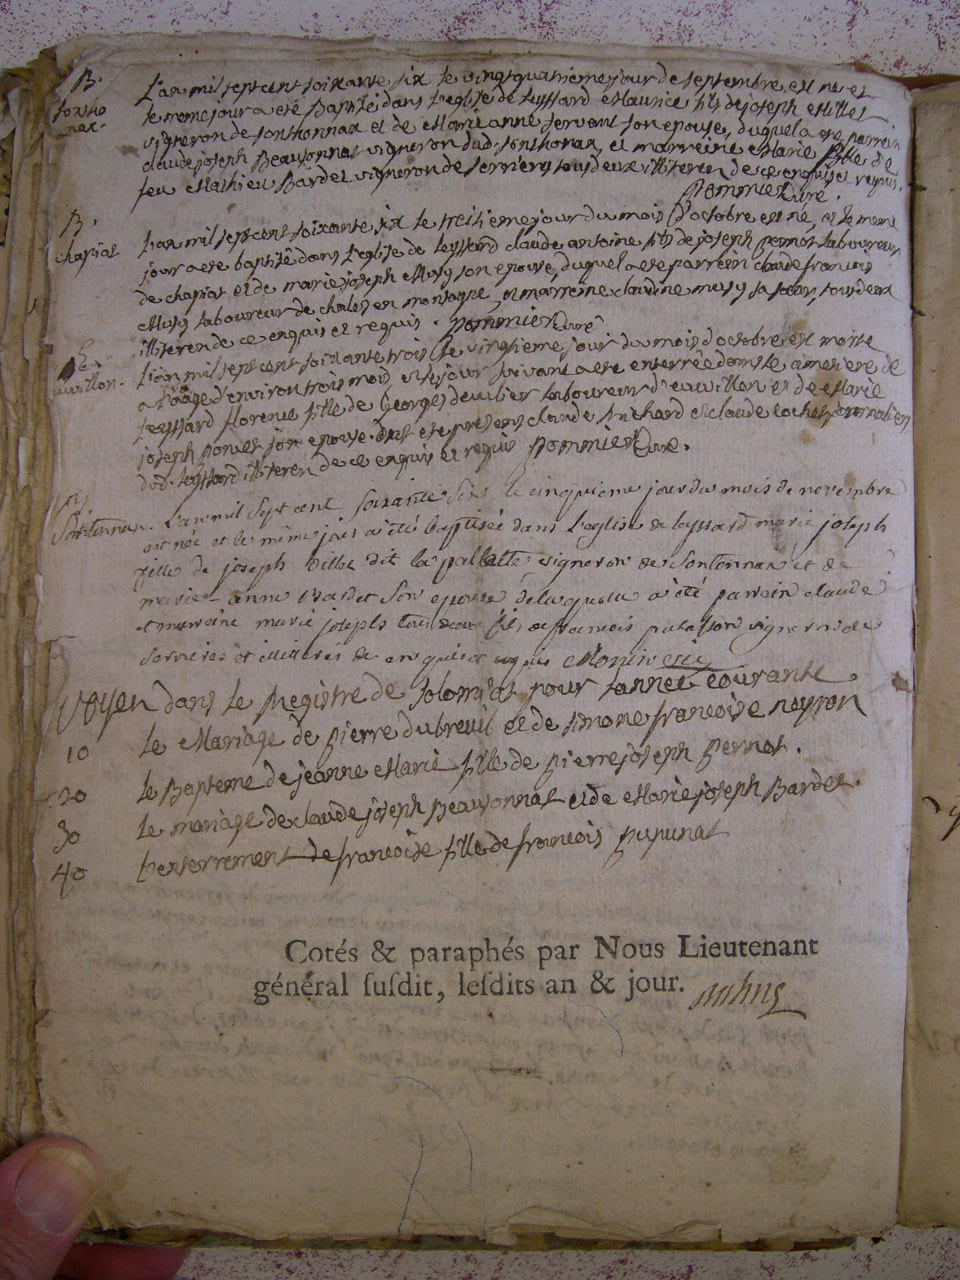 B.
sontho
nax.
L'an mil sept cent soixante six le vingt quatrieme jour de septembre est né et
le meme jour a eté Baptisé dans l'eglise de leyssard Maurice fils de joseph Millet
vigneron de sonthonnax et de Marianne servent son epouse, duquel a ete parrein
claude joseph Beausonnat vigneron dud. sonthonax, et marreine Marie fille de
feu Mathieu Bardet vigneron de serrieres tous deux illiteren de ce enquis et requis.
Pommier Curé.
B.
chapiat
L'an mil sept cent soixante six le treitieme jour du mois d'octobre est né, et le meme
jour a ete baptisé dans l'eglise de leyssard claude antoine fils de joseph pernot laboureur
de chapiat et de marie joseph Musy son epouse, duquel a ete parrein claude francois
Musy laboureur de chalex en montagne et marreine claudine musy sa soeur, tous deux
illiteren de ce enquis et requis. Pommier Curé
E.
L'an mil sept cent soixante trois le vingtieme jour du mois d'octobre est morte
a l'aage d'environ trois mois et le jour suivant a ete enterrée dans le cimetiere de
leyssard florence fille de Georges laboureur d' et de Marie
joseph son epouse. ont ete presens claude et claude journalier
dud. leyssard illiteren de ce enquis et requis Pommier Curé.
B
Sonthonnax. L'an mil sept cent soixante six le cinquieme jour du mois de novembre
est née et le même jour a été baptisée dans l'eglise de leyssard marie joseph
fille de joseph dit la pallette vigneron de Sontonnax et de
marie anne Bardet son epouse de laquelle a été parrain claude
et marreine marie joseph tous deux de francois vigneron de
Serrieres et illiterés de enquis et requis
Voyen dans le Registre de solomiat pour l'année courante
10 le Mariage de pierre dubreuil et de simone francoise neyron
20 le Bapteme de jeanne Marie fille de pierre joseph pernot.
30 le mariage de claude joseph Beausonnat et de Marie joseph Bardet.
40 l'enterrement de francoise fille de francois pupunat
Cotés & paraphés par Nous Lieutenant
général susdit, lesdits an & jour.